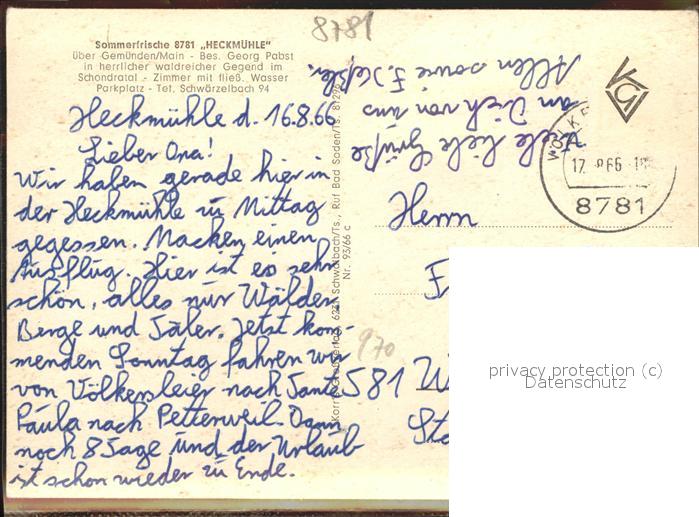 8781
Sommerfrische 8781 „HECKMÜHLE"
über Gemünden/Main - Bes. Georg Pabst
in herrlicher waldreicher Gegend im
Schondratal - Zimmer mit fließ. Wasser
Parkplatz - Tel. Schwärzelbach 94
Heckmühle d. 16.8.66
Lieber Opa!
Wir haben gerade hier in
der Heckmühle zu Mittag
gegessen. Machen einen
Ausflug. Hier ist es sehr
schön, alles nur Wälder
Berge und Täler. Jetzt kom-
menden Sonntag fahren wir
von Völkersleier nach Tante
Paula nach Petterweil. Dann
noch 8 Tage und der Urlaub
ist schon wieder zu Ende.
Viele liebe Grüße
an Dich von uns
Allen sowie F.
Ruf Bad Soden/Ts.
Nr. 93/66 c
17. 8.66
8781
Herrn
970
581 W
privacy protection (c)
Datenschutz